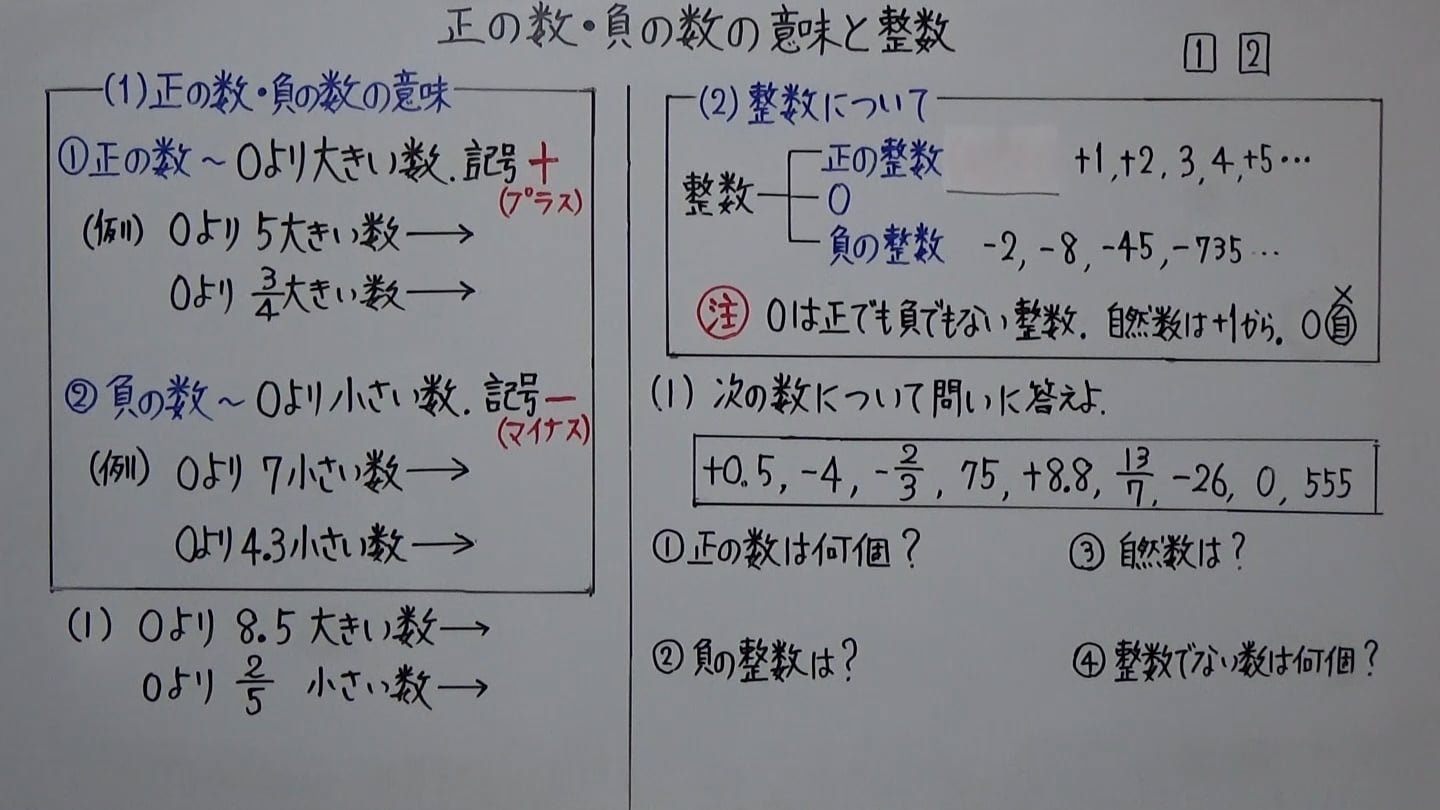 正の数・負の数の意味と整数
1 2
(1)正の数・負の数の意味
①正の数～0より大きい数.記号+
(プラス)
(例) 0より5大きい数→
0より3/4大きい数→
②負の数～0より小さい数.記号−
(マイナス)
(例) 0より7小さい数→
0より4.3小さい数→
(1) 0より8.5大きい数→
0より2/5 小さい数→
(2)整数について
正の整数 +1,+2,3,4,+5…
整数 0
負の整数 -2,-8,-45,-735…
注 0は正でも負でもない整数.自然数は+1から。0自×
(1) 次の数について問いに答えよ.
+0.5, -4, -2/3, 75, +8.8, 13/7, -26, 0, 555
①正の数は何個?
③自然数は?
②負の整数は?
④整数でない数は何個?